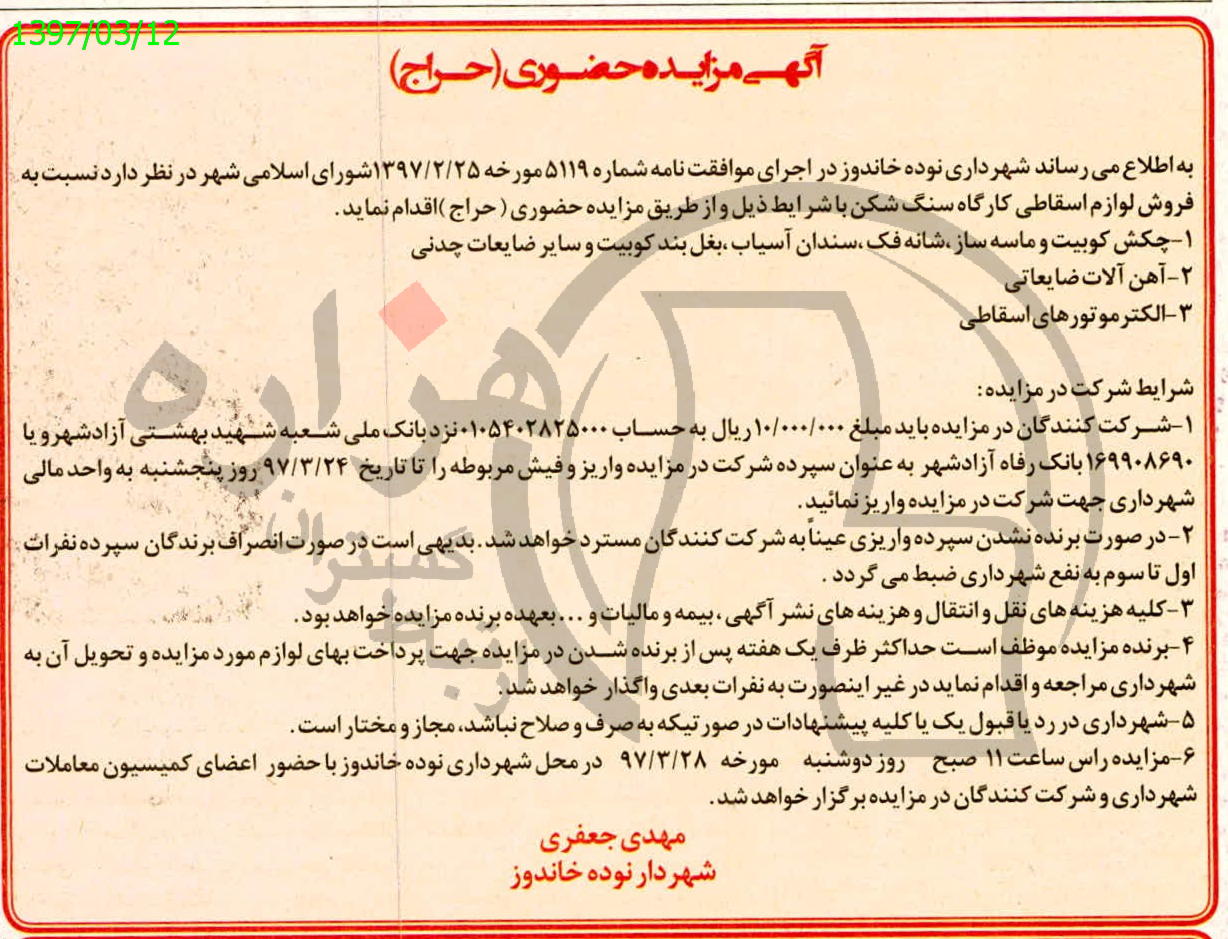 1397/03/12
آگهی مزایده حضوری (حراج)
به اطلاع می رساند شهرداری نوده خاندوز در اجرای موافقت نامه شماره ۵۱۱۹ مورخه ۱۳۹۷/۲/۲۵شورای اسلامی شهر در نظر دارد نسبت به
فروش لوازم اسقاطی کارگاه سنگ شکن با شرایط ذیل و از طریق مزایده حضوری ( حراج )اقدام نماید.
۱-چکش کوبیت و ماسه ساز ،شانه فک ،سندان آسیاب ،بغل بند کوبیت و سایر ضایعات چدنی
۲-آهن آلات ضایعاتی
۳-الکترموتورهای اسقاطی
شرایط شرکت در مزایده:
۱-شرکت کنندگان در مزایده باید مبلغ ۱۰/۰۰۰/۰۰۰ ریال به حساب ۰۱۰۵۴۰۲۸۲۵۰۰۰نزد بانک ملی شعبه شهید بهشتی آزادشهر و یا
۱۶۹۹۰۸۶۹۰ بانک رفاه آزادشهر به عنوان سپرده شرکت در مزایده واریز و فیش مربوطه را تا تاریخ ۹۷/۳/۲۴ روز پنجشنبه به واحد مالی
شهرداری جهت شرکت در مزایده واریز نمائید.
۲-در صورت برنده نشدن سپرده واریزی عیناً به شرکت کنندگان مسترد خواهد شد. بدیهی است در صورت انصراف برندگان سپرده نفرات
اول تا سوم به نفع شهرداری ضبط می گردد .
۳-کلیه هزینه های نقل و انتقال و هزینه های نشر آگهی ، بیمه و مالیات و ... بعهده برنده مزایده خواهد بود.
۴-برنده مزایده موظف است حداکثر ظرف یک هفته پس از برنده شدن در مزایده جهت پرداخت بهای لوازم مورد مزایده و تحویل آن به
شهرداری مراجعه و اقدام نماید در غیر اینصورت به نفرات بعدی واگذار خواهد شد.
۵-شهرداری در رد یا قبول یک یا کلیه پیشنهادات در صورتیکه به صرف و صلاح نباشد، مجاز و مختار است.
۶-مزایده راس ساعت ۱۱ صبح روز دوشنبه مورخه ۹۷/۳/۲۸ در محل شهرداری نوده خاندوز با حضور اعضای کمیسیون معاملات
شهرداری و شرکت کنندگان در مزایده برگزار خواهد شد.
مهدی جعفری
شهردار نوده خاندوز
هزاره
گستران